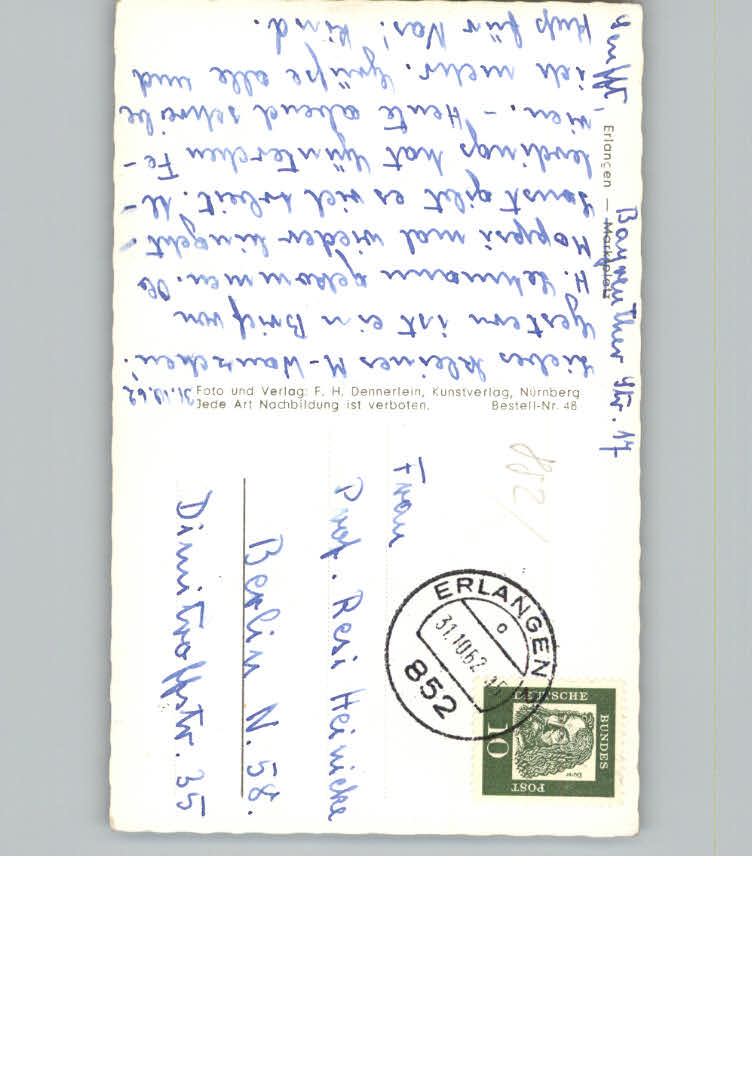 31.10.62
Liebes kleines M-Wänzchen!
Gestern ist ein Brief von
H. Lehmann gekommen. Ob
Moppsi mal wieder hingeht.
Sonst gibt es viel Arbeit. Al-
lerdings hat Günterchen Fe-
rien. – Heute abend schreibe
ich mehr. Grüße alle und
Kuß für Vas! Kind.
Bayreuther Str. 17
Erlangen — Marktplatz
Foto und Verlag: F. H. Dennerlein, Kunstverlag, Nürnberg
Jede Art Nachbildung ist verboten. Bestell-Nr. 48
852/
Frau
Prof. Resi Heinicke
Berlin N. 58.
Dimitroffstr. 35
ERLANGEN
31.10.62
852
DEUTSCHE
BUNDES
POST
10
Dürer